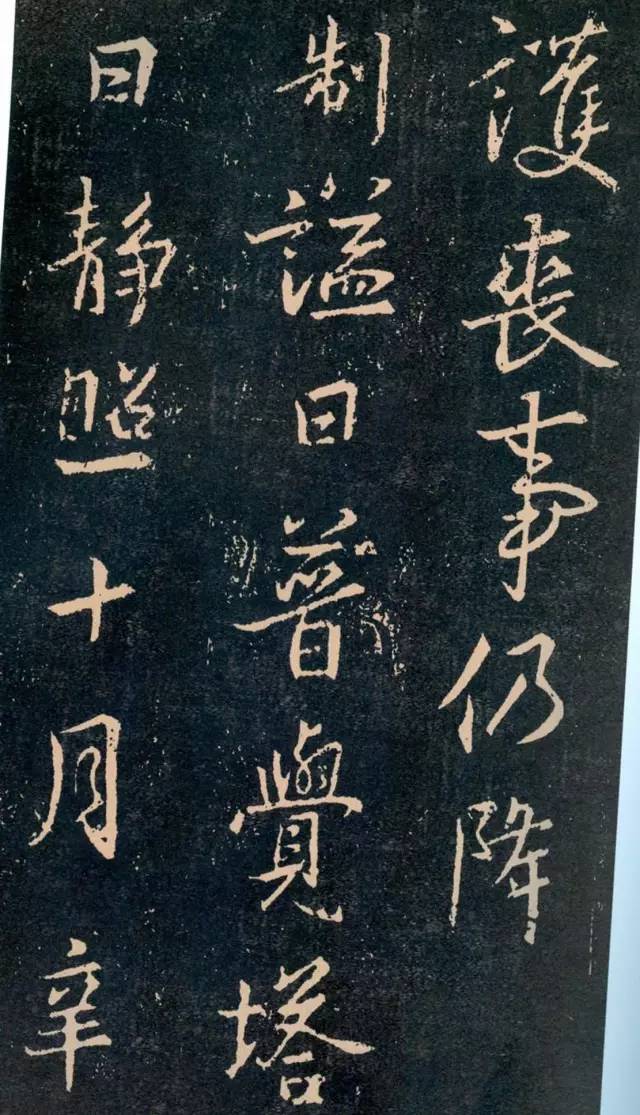 護喪事仍降
制謚曰普覺塔
曰靜照十月辛